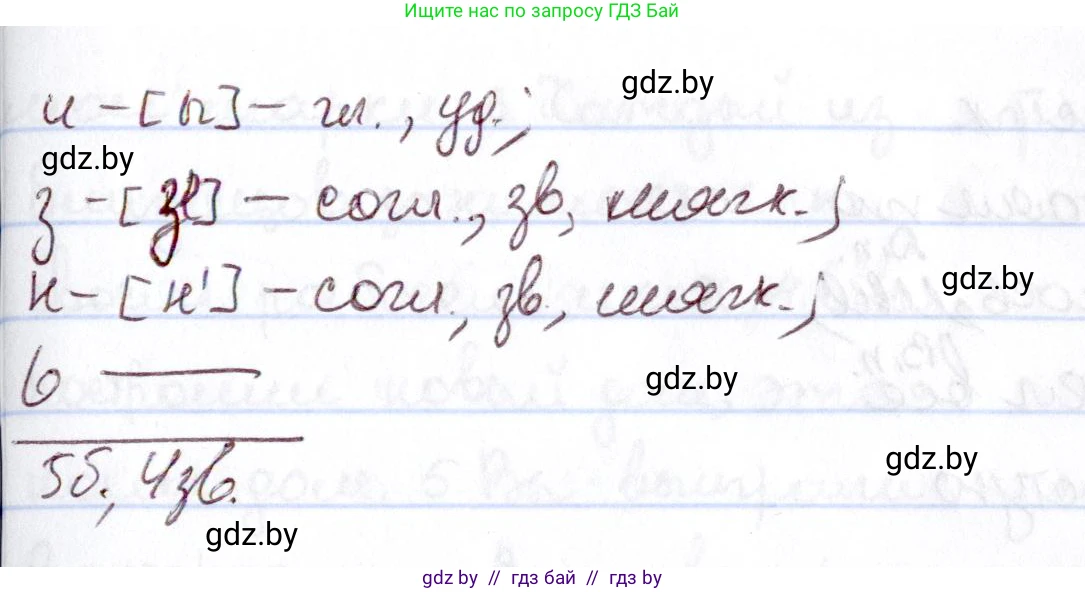 Ищите нас по запросу ГДЗ Бай
gdz.by
и – [ы] – гл., уд.;
gdz.by
з – [з'] – согл., зв, мягк.;
н – [н'] – согл., зв., мягк.;
gdz.by
ь ——
gdz.by
5б., 4зв.
gdz.by
gdz.by
gdz.by // гдз бай // гдз by